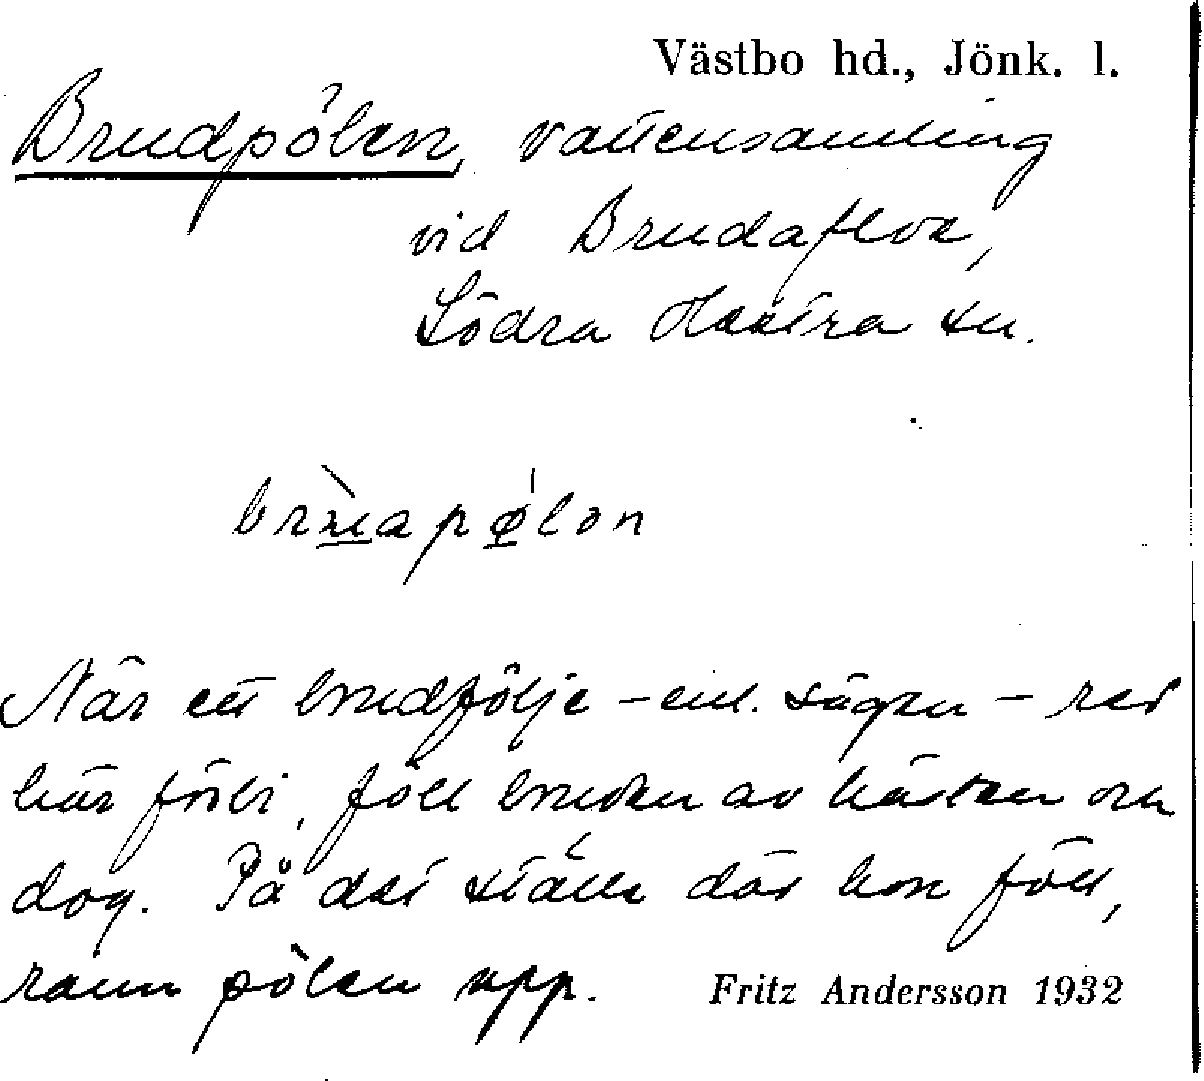 Västbo hd., Jönk. l.
Brudpölen, vattensamling
vid Brudafloa,
Södra Hestra sn.
brùapǿlon
När ett brudfölje – enl. sägnen – red
här förbi, föll bruden av hästen och
dog. På det ställe där hon föll,
rann pölen upp. Fritz Andersson 1932